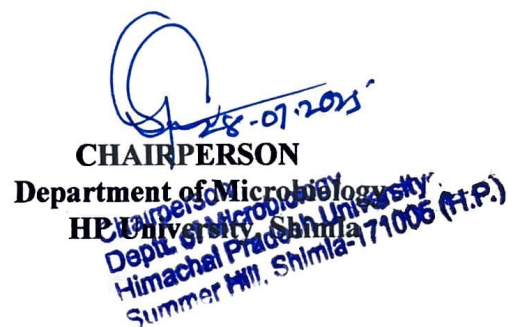 28-07-2025
CHAIRPERSON
Department of Microbiology
HP University, Shimla
Chairperson
Deptt. of Microbiology
Himachal Pradesh University
Summer Hill, Shimla-171005 (H.P.)